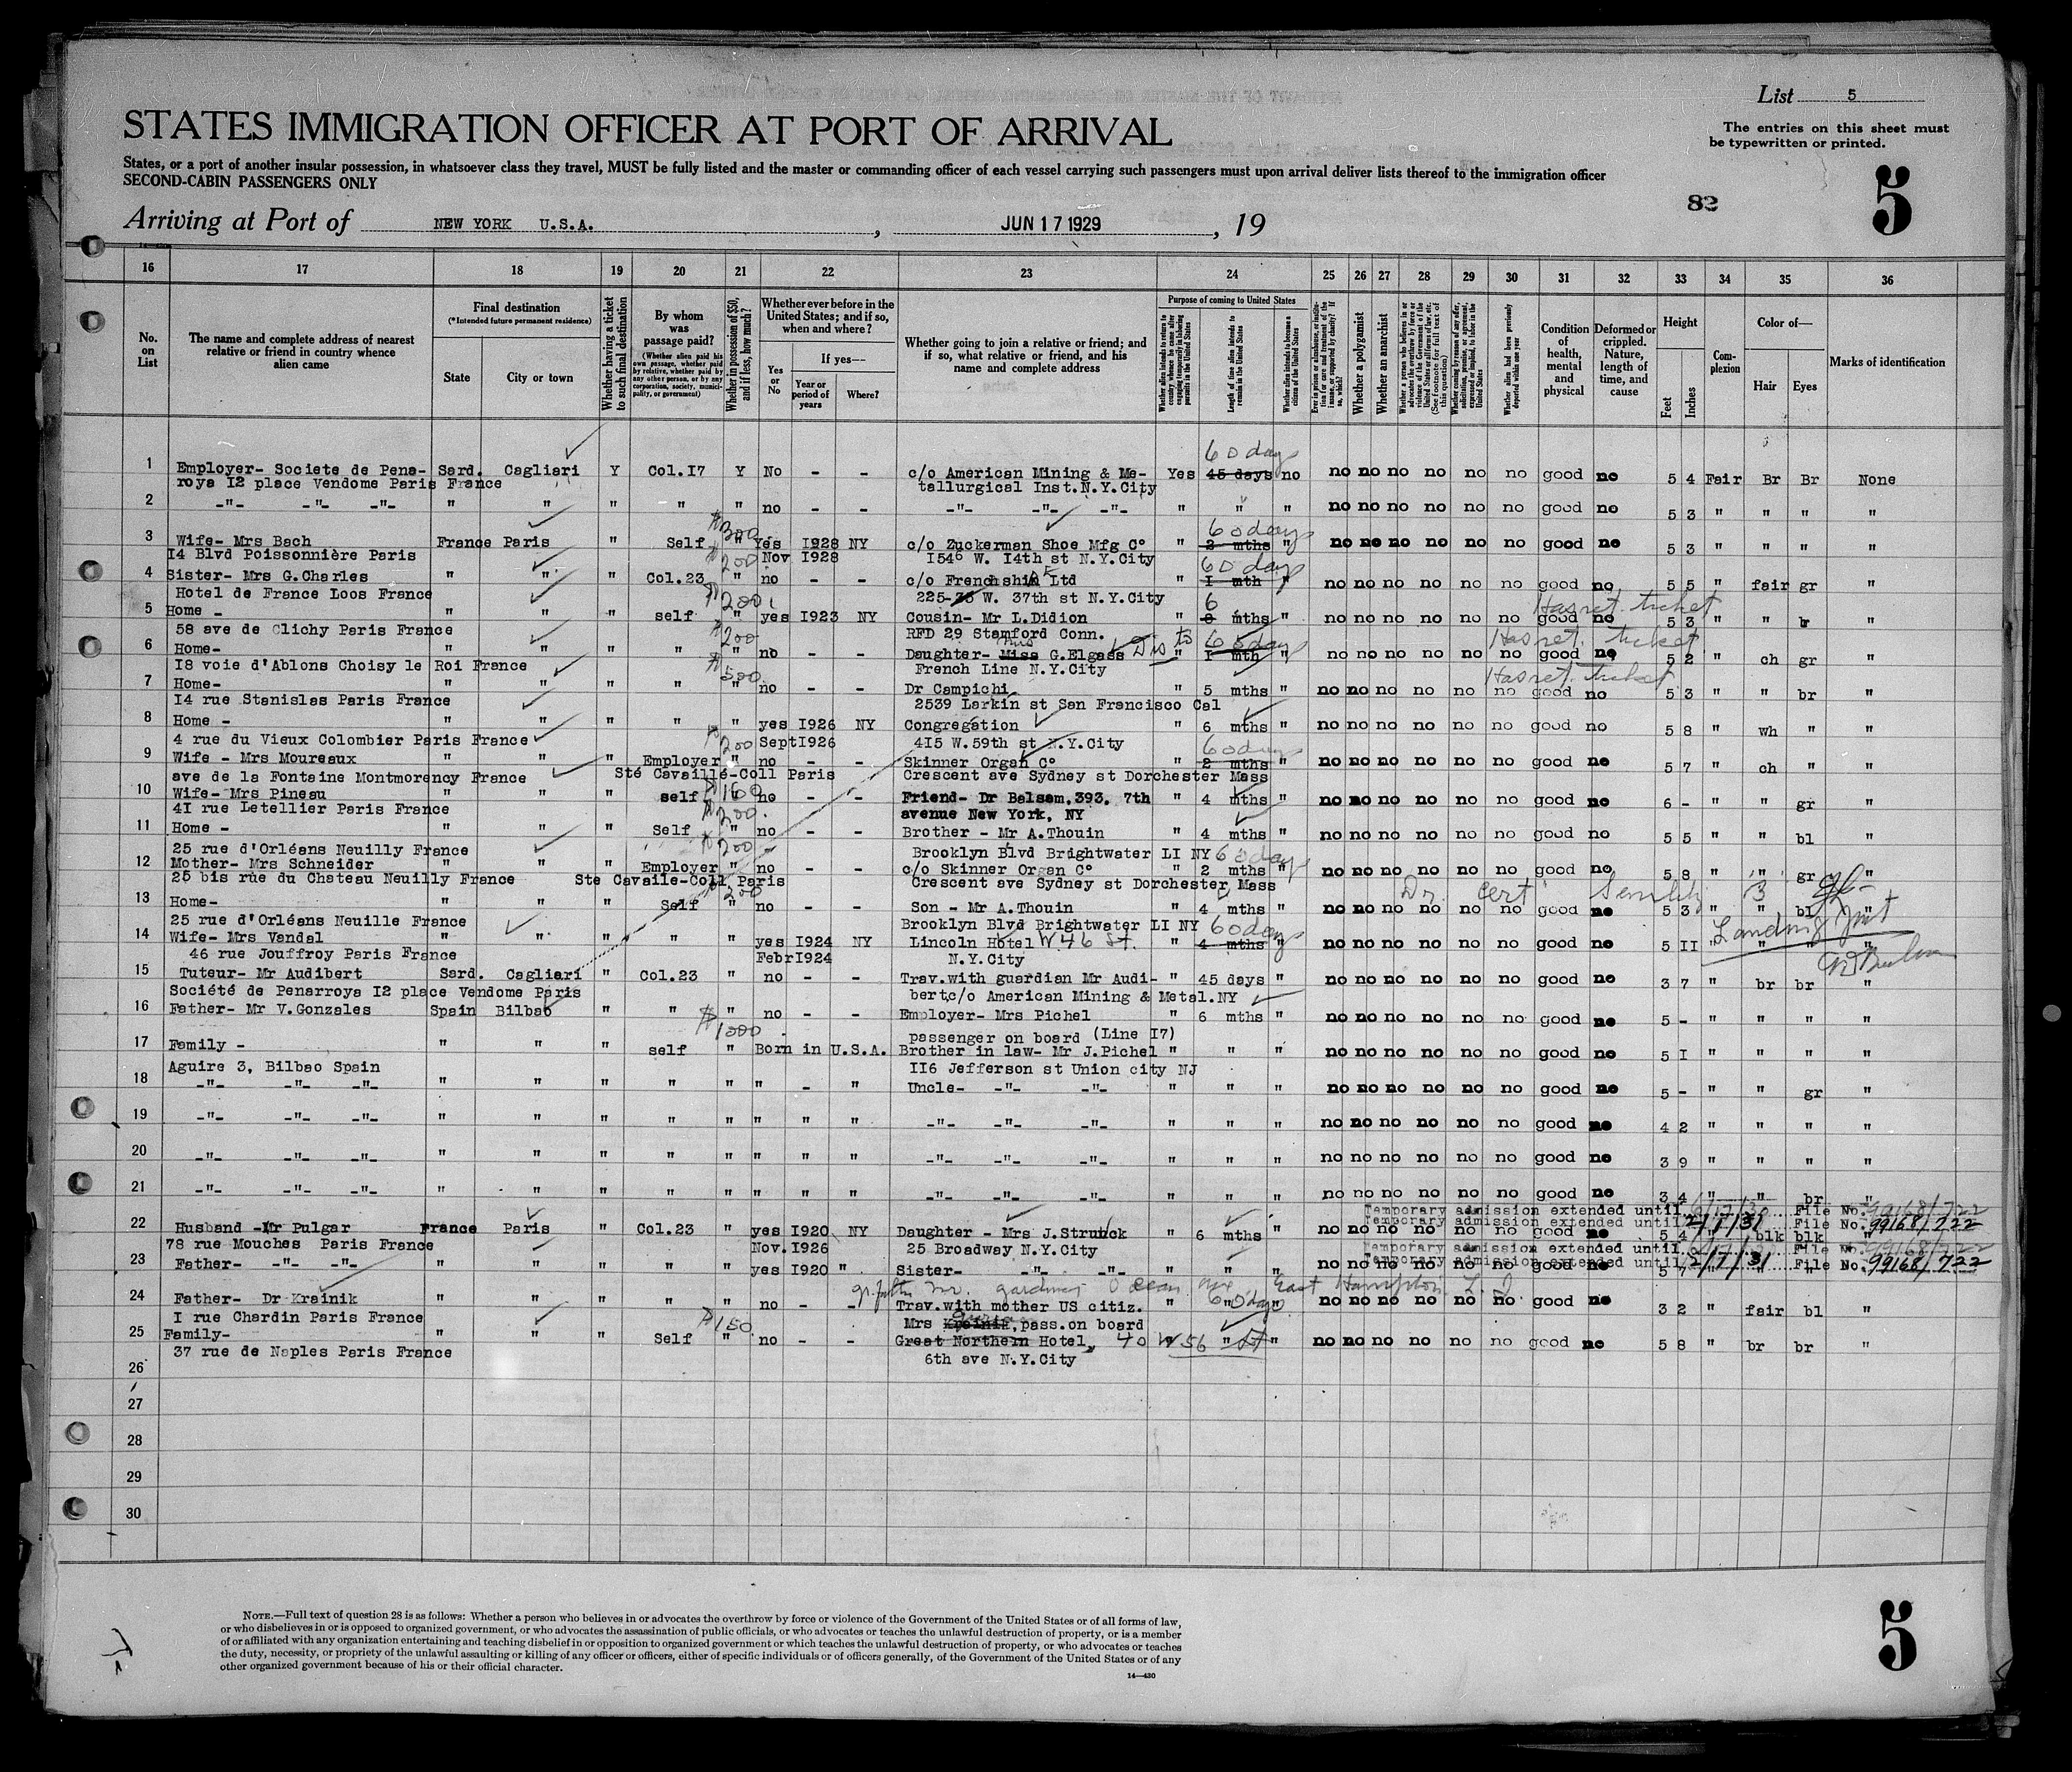 List 5
The entries on this sheet must
be typewritten or printed.
STATES IMMIGRATION OFFICER AT PORT OF ARRIVAL
States, or a port of another insular possession, in whatsoever class they travel, MUST be fully listed and the master or commanding officer of each vessel carrying such passengers must upon arrival deliver lists thereof to the immigration officer
SECOND-CABIN PASSENGERS ONLY
82
5
Arriving at Port of NEW YORK U.S.A. , JUN 17 1929 , 19
16 17 18 19 20 21 22 23 24 25 26 27 28 29 30 31 32 33 34 35 36
No. on List
The name and complete address of nearest relative or friend in country whence alien came
Final destination
(*Intended future permanent residence)
State City or town
Whether having a ticket to such final destination
By whom was passage paid?
(Whether alien paid his own passage, whether paid by relative, whether paid by any other person, or by any corporation, society, municipality, or government)
Whether in possession of $50, and if less, how much?
Whether ever before in the United States; and if so, when and where?
Yes or No
If yes—
Year or period of years
Where?
Whether going to join a relative or friend; and if so, what relative or friend, and his name and complete address
Purpose of coming to United States
Length of time alien intends to remain in the United States
Whether alien intends to become a citizen of the United States
Whether a polygamist
Whether an anarchist
Whether alien had been previously deported within one year
Condition of health, mental and physical
Deformed or crippled. Nature, length of time, and cause
Height
Feet Inches
Complexion
Color of—
Hair Eyes
Marks of identification
60 days
1 Employer- Societe de Pena- Sard. Cagliari Y Col.I7 Y No - - c/o American Mining & Me- Yes 45 days no no no no no no no good no 5 4 Fair Br Br None
roya I2 place Vendome Paris France tallurgical Inst.N.Y.City
2 -"- -"- -"- " " " " " no - - -"- -"- -"- " " " no no no no no no good no 5 3 " " " "
$300 60 days
3 Wife- Mrs Bach France Paris " Self " Yes I928 NY c/o Zuckerman Shoe Mfg C° " 2 mths " no no no no no no good no 5 3 " " " "
I4 Blvd Poissonnière Paris $200 Nov I928 I546 W. I4th st N.Y.City 60 days
4 Sister- Mrs G.Charles " " " Col.23 " no - - c/o Frenchship Ltd " I mth " no no no no no no good no 5 5 " fair gr "
Hotel de France Loos France $200 225-35 W. 37th st N.Y.City 6 Has ret. ticket
5 Home - " " " self " yes I923 NY Cousin- Mr L.Didion " 8 mths " no no no no no no good no 5 3 " " br "
58 ave de Clichy Paris France $200 RFD 29 Stamford Conn. Mrs Dis 60 days Has ret. ticket
6 Home- " " " " " no - - Daughter- Miss G.Elgass " I mth " no no no no no no good no 5 2 " ch gr "
I8 voie d'Ablons Choisy le Roi France $500 French Line N.Y.City Has ret. ticket
7 Home- " " " " " no - - Dr Campichi " 5 mths " no no no no no no good no 5 3 " " br "
I4 rue Stanislas Paris France 2539 Larkin st San Francisco Cal
8 Home - " " " " " yes I926 NY Congregation " 6 mths " no no no no no no good no 5 8 " wh " "
4 rue du Vieux Colombier Paris France $200 SeptI926 4I5 W.59th st N.Y.City 60 days
9 Wife - Mrs Moureaux " " Employer " no - - Skinner Organ C° " 2 mths " no no no no no no good no 5 7 " ch " "
ave de la Fontaine Montmorency France Sté Cavaillé-Coll Paris Crescent ave Sydney st Dorchester Mass
10 Wife- Mrs Pineau " " " self $160 " no - - Friend- Dr Balsam.393. 7th " 4 mths " no no no no no no good no 6 - " " gr "
4I rue Letellier Paris France $200. avenue New York, NY
11 Home - " " " Self " no - - Brother - Mr A.Thouin " 4 mths " no no no no no no good no 5 5 " " bl "
25 rue d'Orléans Neuilly France $200 Brooklyn Blvd Brightwater LI NY 60 days
12 Mother- Mrs Schneider " " " Employer " no - - c/o Skinner Organ C° " 2 mths " no no no no no no good no 5 8 " " gr "
25 bis rue du Chateau Neuilly France Ste Cavaile-Coll Paris Crescent ave Sydney st Dorchester Mass
200 Dr. Cert Senility
13 Home- " " " Self " no - - Son - Mr A.Thouin " 4 mths " no no no no no no good no 5 3 " " bl "
25 rue d'Orléans Neuille France Brooklyn Blvd Brightwater LI NY 60 days Landing
14 Wife- Mrs Vandal " " " " " yes I924 NY Lincoln Hotel W 46 St. " 4 mths " no no no no no no good no 5 II " " " "
46 rue Jouffroy Paris France FebrI924 N.Y.City
15 Tuteur- Mr Audibert Sard. Cagliari " Col.23 " no - - Trav.with guardian Mr Audi- " 45 days " no no no no no no good no 3 7 " br br "
Société de Penarroya I2 place Vendome Paris bert,c/o American Mining & Metal.NY
16 Father- Mr V.Gonzales Spain Bilbao " " " no - - Employer- Mrs Pichel " 6 mths " no no no no no no good no 5 - " " " "
$1500 passenger on board (Line I7)
17 Family - " " " self " Born in U.S.A. Brother in law- Mr J.Pichel " " " no no no no no no good no 5 I " " " "
Aguire 3, Bilbao Spain II6 Jefferson st Union city NJ
18 -"- -"- -"- " " " " " " - " Uncle- -"- -"- " " " no no no no no no good no 5 - " " gr "
19 -"- -"- -"- " " " " " " " " -"- -"- -"- " " " no no no no no no good no 4 2 " " " "
20 -"- -"- -"- " " " " " " " " -"- -"- -"- " " " no no no no no no good no 3 9 " " " "
21 -"- -"- -"- " " " " " " " " -"- -"- -"- " " " no no no no no no good no 3 4 " " br "
Temporary admission extended until 6/17/30 File No. 99168/722
Temporary admission extended until 2/7/31 File No. 99168/722
22 Husband -Mr Pulgar France Paris " Col.23 " yes I920 NY Daughter - Mrs J.Struuck " 6 mths " no no no no no no good no 5 4 " blk blk "
78 rue Mouches Paris France Nov.I926 25 Broadway N.Y.City
Temporary admission extended until File No. 99168/722
Temporary admission extended until 2/7/31 File No. 99168/722
23 Father- -"- -"- " " " " " yes I920 " Sister- -"- -"- " " " no no no no no no good no 5 7 " " " "
Mr. gardiner Ocean Ave East Hampton L. I.
24 Father- Dr Krainik " " " " " no - - Trav.with mother US citiz. " 60 days " no no no no no no good no 3 2 " fair bl "
I rue Chardin Paris France $150 Mrs Krainik,pass.on board
25 Family- " " " Self " no - - Great Northern Hotel, 40 W 56 St " no no no no no no good no 5 8 " br br "
37 rue de Naples Paris France 6th ave N.Y.City
26
27
28
29
30
NOTE.—Full text of question 28 is as follows: Whether a person who believes in or advocates the overthrow by force or violence of the Government of the United States or of all forms of law,
or who disbelieves in or is opposed to organized government, or who advocates the assassination of public officials, or who advocates or teaches the unlawful destruction of property, or is a member
of or affiliated with any organization entertaining and teaching disbelief in or opposition to organized government or which teaches the unlawful destruction of property, or who advocates or teaches
the duty, necessity, or propriety of the unlawful assaulting or killing of any officer or officers, either of specific individuals or of officers generally, of the Government of the United States or of any
other organized government because of his or their official character.
14—430
5